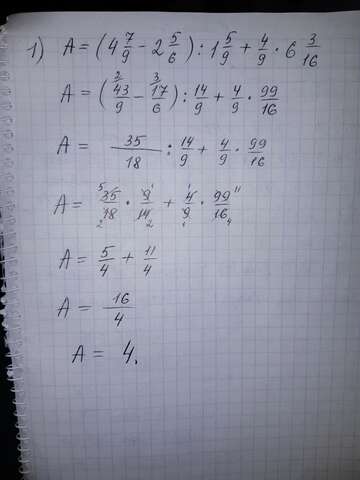 1) A = (4 7/9 - 2 5/6) : 1 5/9 + 4/9 · 6 3/16
A = (43/9 2 - 17/6 3) : 14/9 + 4/9 · 99/16
A = 35/18 : 14/9 + 4/9 · 99/16
A = 35 5/18 2 · 9 1/14 2 + 4 1/9 1 · 99 11/16 4
A = 5/4 + 11/4
A = 16/4
A = 4.